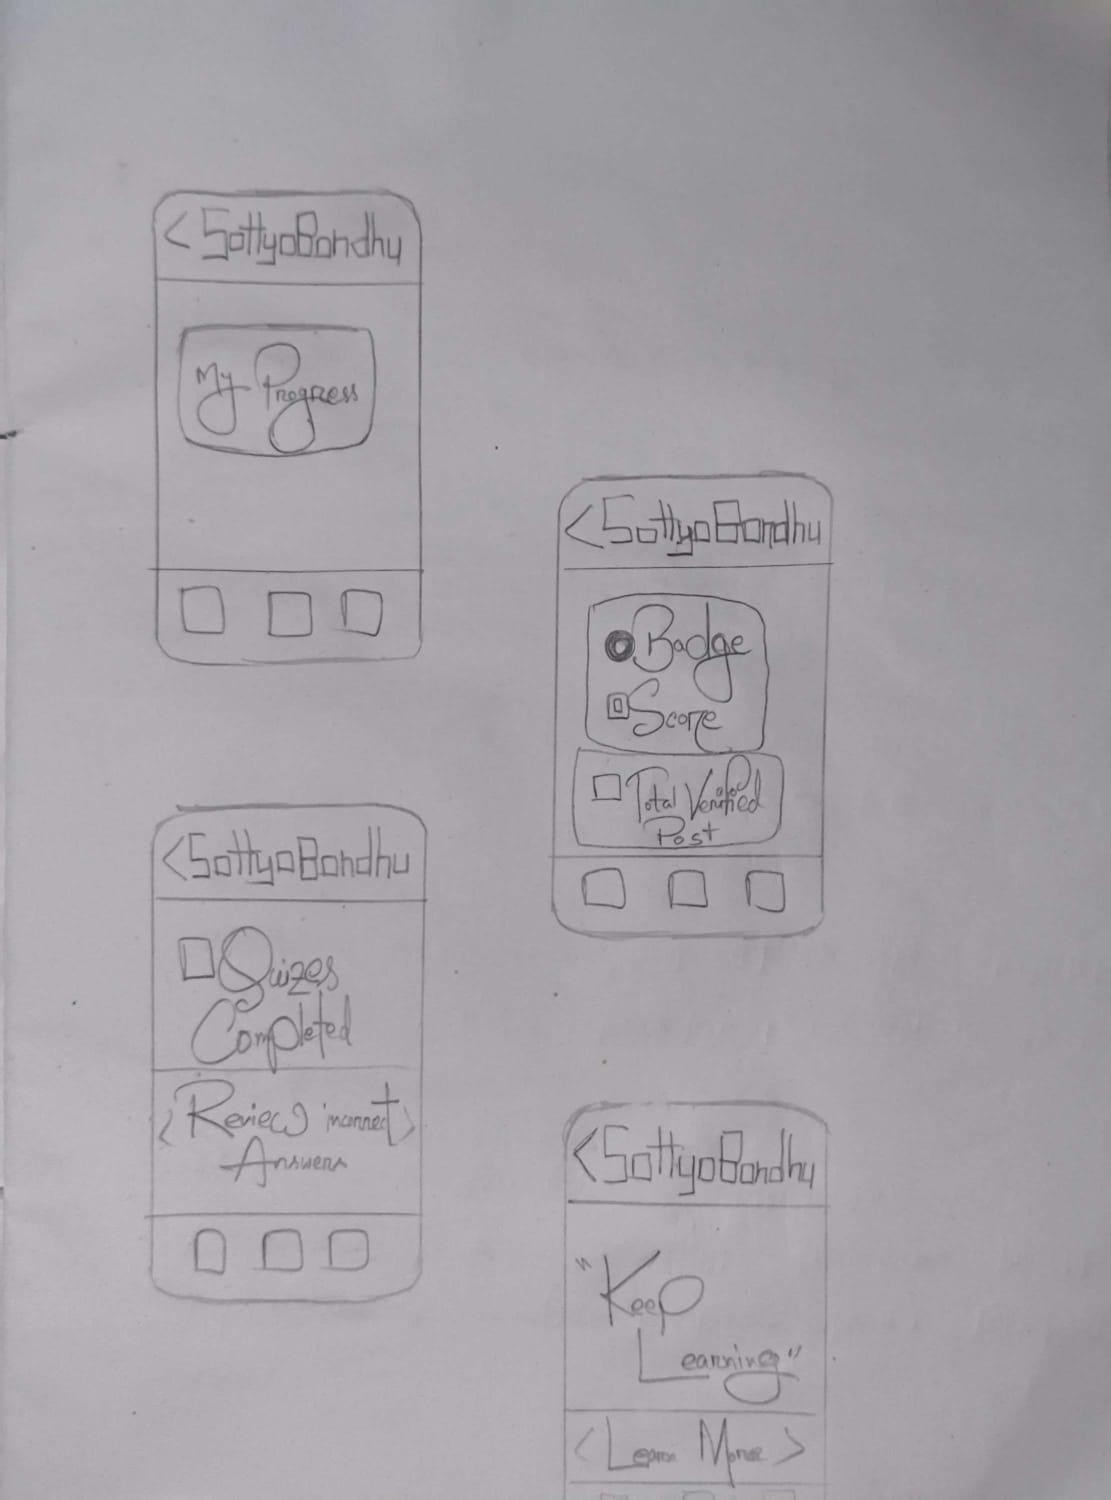 < SottyoBondhu
My Progress
< SottyoBondhu
Badge
Score
Total Verified
Post
< SottyoBondhu
Quizes
Completed
< Review incorrect >
Answers
< SottyoBondhu
"Keep
Learning"
< Learn More >